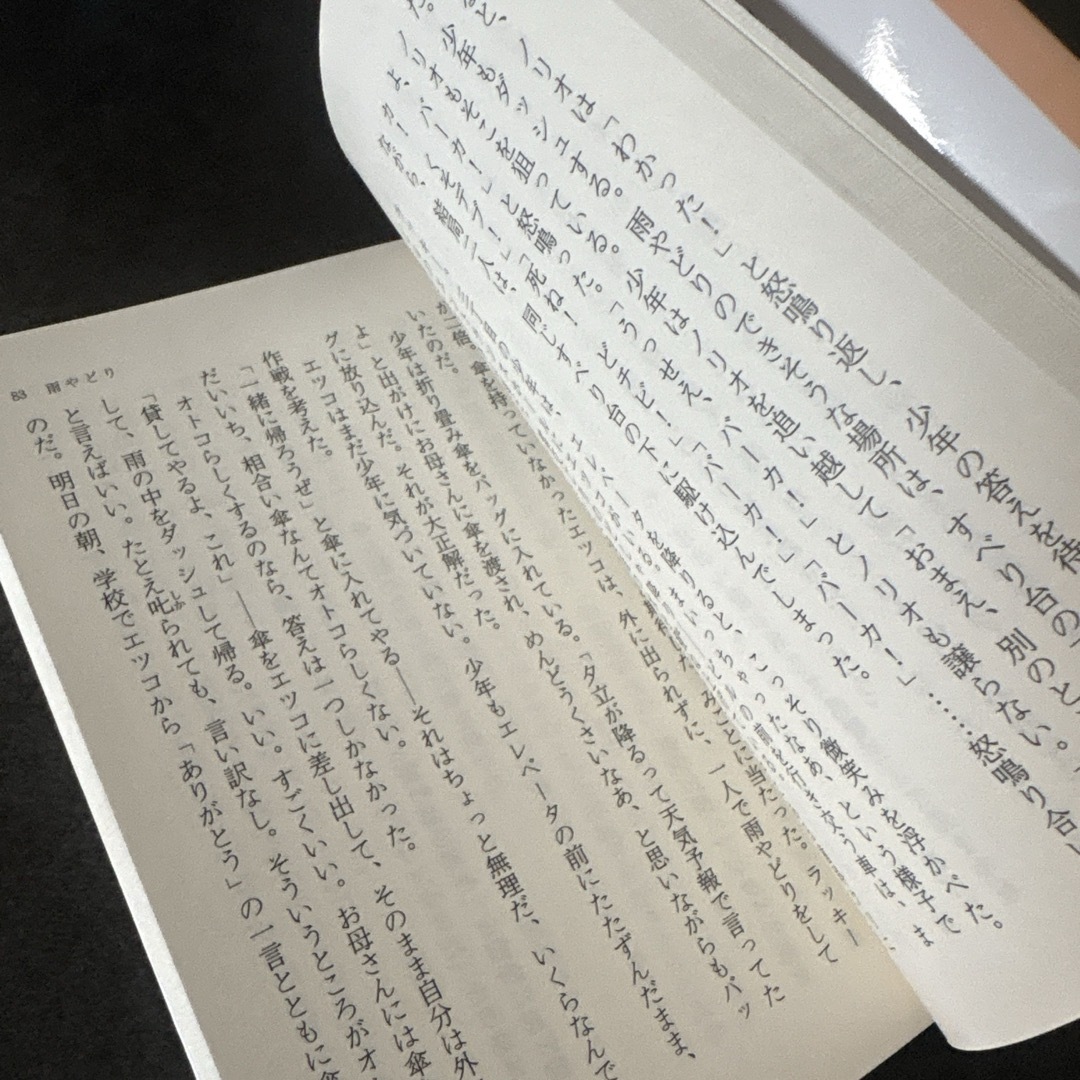 と、ノリオは「わかった！」と怒鳴り返し、少年の答えを待
た。
少年もダッシュする。雨やどりのできそうな場所は、すべり台の
ノリオもそこを狙っている。少年はノリオを追い越して「おまえ、別のと
よ、バーカ！」と怒鳴った。「うっせえ、バーカ！」とノリオも譲らない。
カ！」「死ね！」「どチビ！」「バーカ！」「バーカ！」……怒鳴り合い
ながら、結局二人は、同じすべり台の下に駆け込んでしまった。
エレベータを降りると、こっそり微笑みを浮かべた。
ちゃったなあ、という様子で
行き交う車は、
ことに当たった。ラッキー
が二倍。傘を持っていなかったエツコは、外に出られずに、一人で雨やどりをして
いたのだ。
少年は折り畳み傘をバッグに入れている。「夕立が降るって天気予報で言ってた
よ」と出がけにお母さんに傘を渡され、めんどうくさいなあ、と思いながらもバッ
グに放り込んだ。それが大正解だった。
エツコはまだ少年に気づいていない。少年もエレベータの前にたたずんだまま、
作戦を考えた。
「一緒に帰ろうぜ」と傘に入れてやる――それはちょっと無理だ、いくらなんで
だいいち、相合い傘なんてオトコらしくない。
オトコらしくするのなら、答えは一つしかなかった。
「貸してやるよ、これ」――傘をエツコに差し出して、そのまま自分は外
して、雨の中をダッシュして帰る。いい。すごくいい。お母さんには傘
と言えばいい。たとえ叱られても、言い訳なし。そういうところがオ
のだ。明日の朝、学校でエツコから「ありがとう」の一言とともに
83 雨やどり